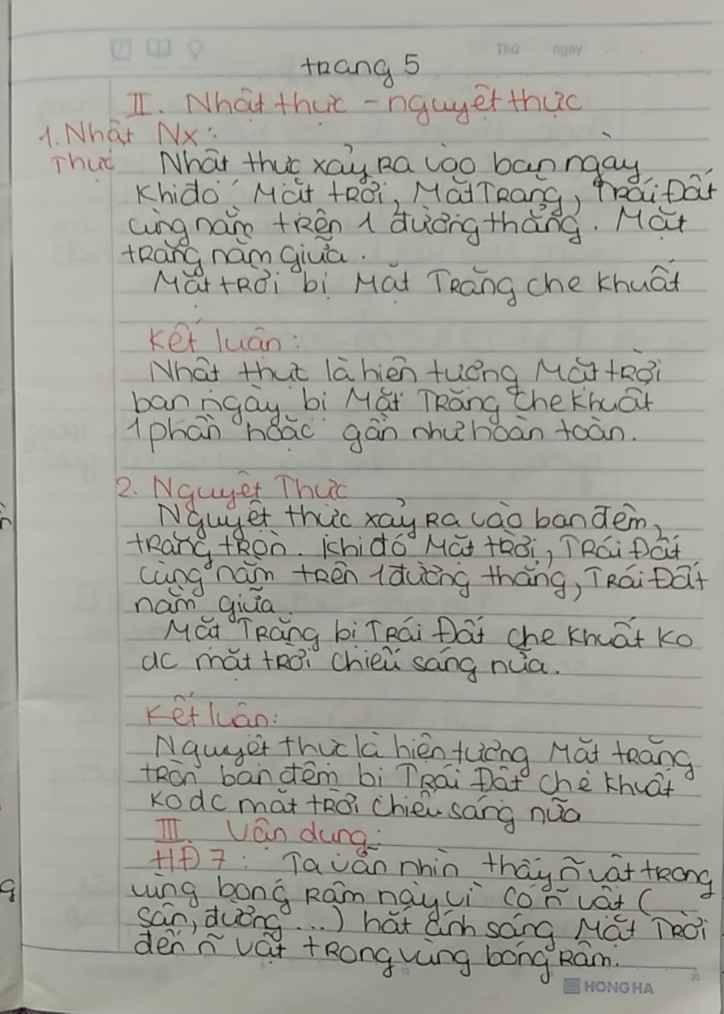 Thứ ngày
trang 5
II. Nhật thực - nguyệt thực
1. Nhật Nx:
Thực Nhật thực xảy ra vào ban ngày
Khi đó Mặt trời, Mặt Trăng, Trái Đất
cùng nằm trên 1 đường thẳng. Mặt
trăng nằm giữa.
Mặt trời bị Mặt Trăng che khuất
Kết luận:
Nhật thực là hiện tượng Mặt trời
ban ngày bị Mặt Trăng che khuất
1 phần hoặc gần như hoàn toàn.
2. Nguyệt Thực
Nguyệt thực xảy ra vào ban đêm,
trăng tròn. Khi đó Mặt trời, Trái Đất
cùng nằm trên 1 đường thẳng, Trái Đất
nằm giữa.
Mặt Trăng bị Trái Đất che khuất ko
đc mặt trời chiếu sáng nữa.
Kết luận:
Nguyệt thực là hiện tượng Mặt trăng
tròn ban đêm bị Trái Đất che khuất
ko dc mặt trời chiếu sáng nữa
III. Vận dụng:
HĐ 7: Ta vẫn nhìn thấy ~n vật trong
vùng bóng râm này vì có ~n vật (
sân, đường ...) hắt ánh sáng Mặt Trời
đến ~n vật trong vùng bóng râm.
HONG HA